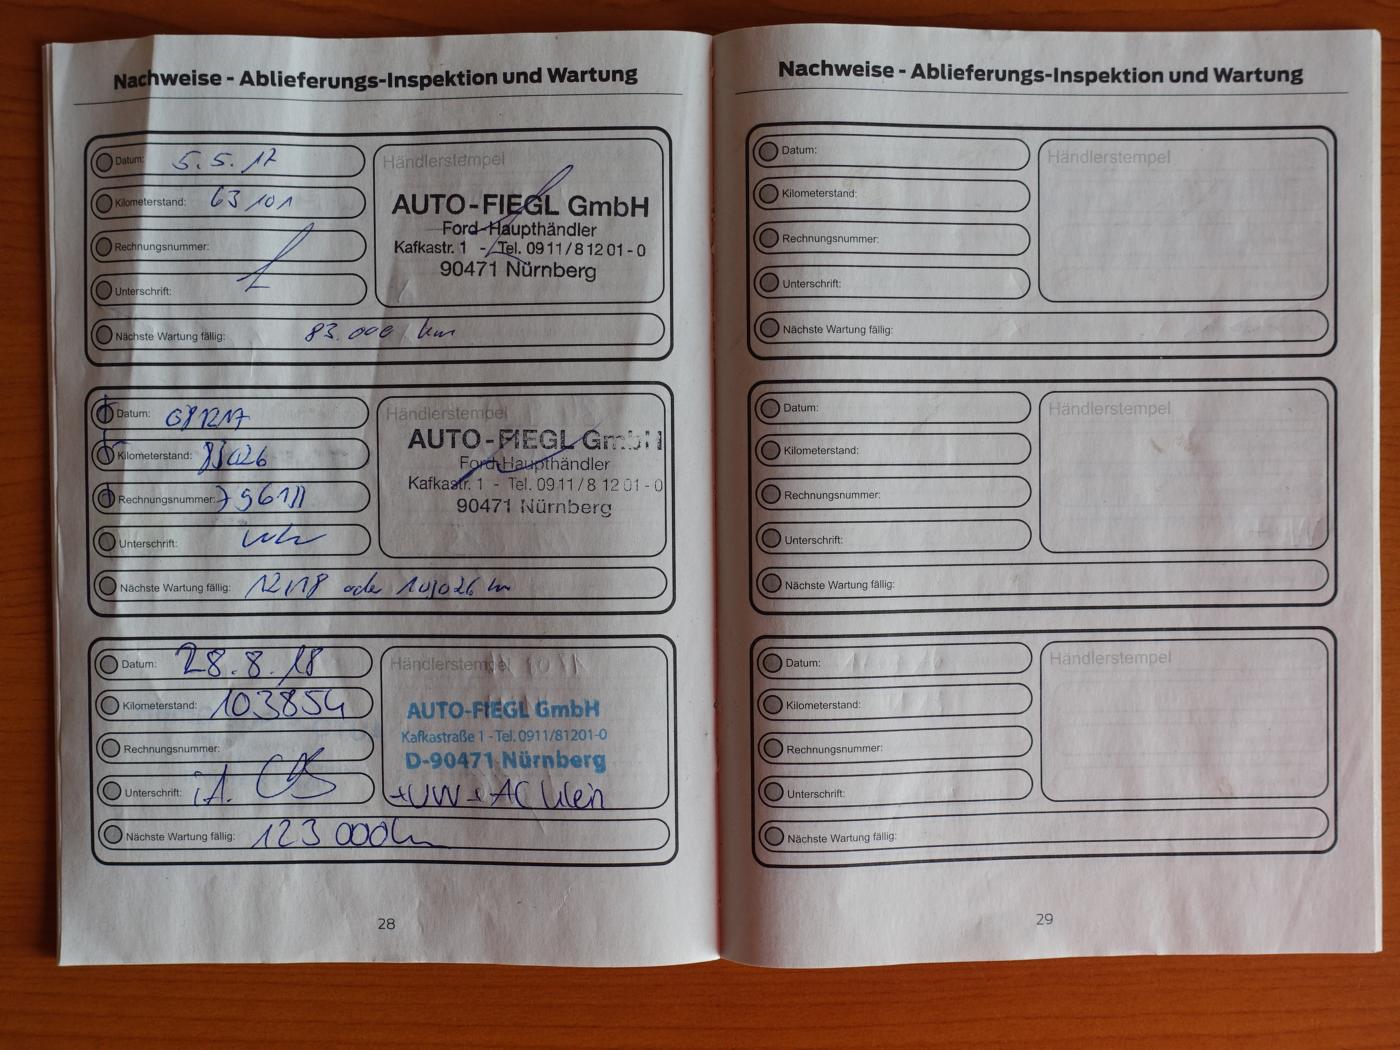 Nachweise - Ablieferungs-Inspektion und Wartung
Datum: 5.5.17
Kilometerstand: 63101
Rechnungsnummer:
Unterschrift:
Händlerstempel
AUTO-FIEGL GmbH
Ford-Haupthändler
Kafkastr. 1 - Tel. 0911/81201-0
90471 Nürnberg
Nächste Wartung fällig: 83.000 km
Datum: 081217
Kilometerstand: 83026
Rechnungsnummer:
Unterschrift:
Händlerstempel
AUTO-FIEGL GmbH
Ford-Haupthändler
Kafkastr. 1 - Tel. 0911/81201-0
90471 Nürnberg
Nächste Wartung fällig: 12/18 oder 103026 km
Datum: 28.8.18
Kilometerstand: 103854
Rechnungsnummer:
Unterschrift: i.A.
Händlerstempel
AUTO-FIEGL GmbH
Kafkastraße 1 - Tel. 0911/81201-0
D-90471 Nürnberg
+UW + AC klein
Nächste Wartung fällig: 123000km
28
Nachweise - Ablieferungs-Inspektion und Wartung
Datum:
Kilometerstand:
Rechnungsnummer:
Unterschrift:
Händlerstempel
Nächste Wartung fällig:
Datum:
Kilometerstand:
Rechnungsnummer:
Unterschrift:
Händlerstempel
Nächste Wartung fällig:
Datum:
Kilometerstand:
Rechnungsnummer:
Unterschrift:
Händlerstempel
Nächste Wartung fällig:
29